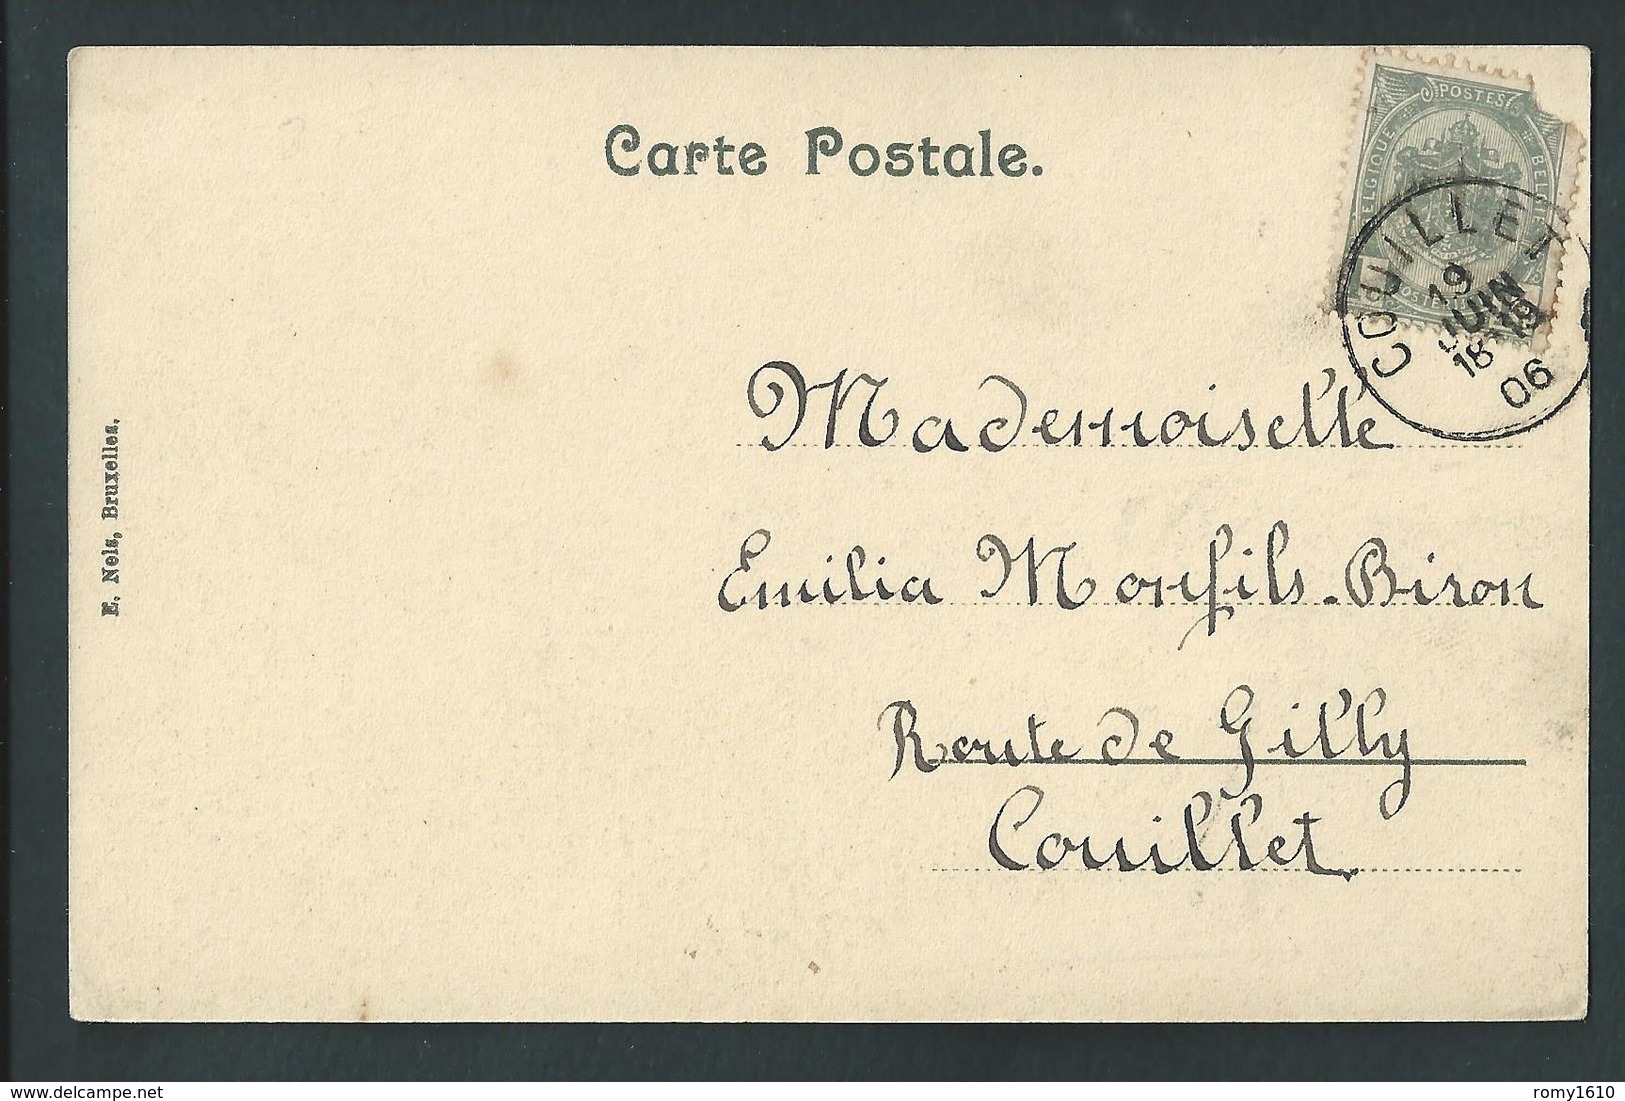 Carte Postale.
POSTES
BELGIQUE
COUILLET
19
JUIN
18-19
06
Mademoiselle
Emilia Monfils-Biron
Route de Gilly
Couillet
E. Nels, Bruxelles.
delcampe.net
romy1610